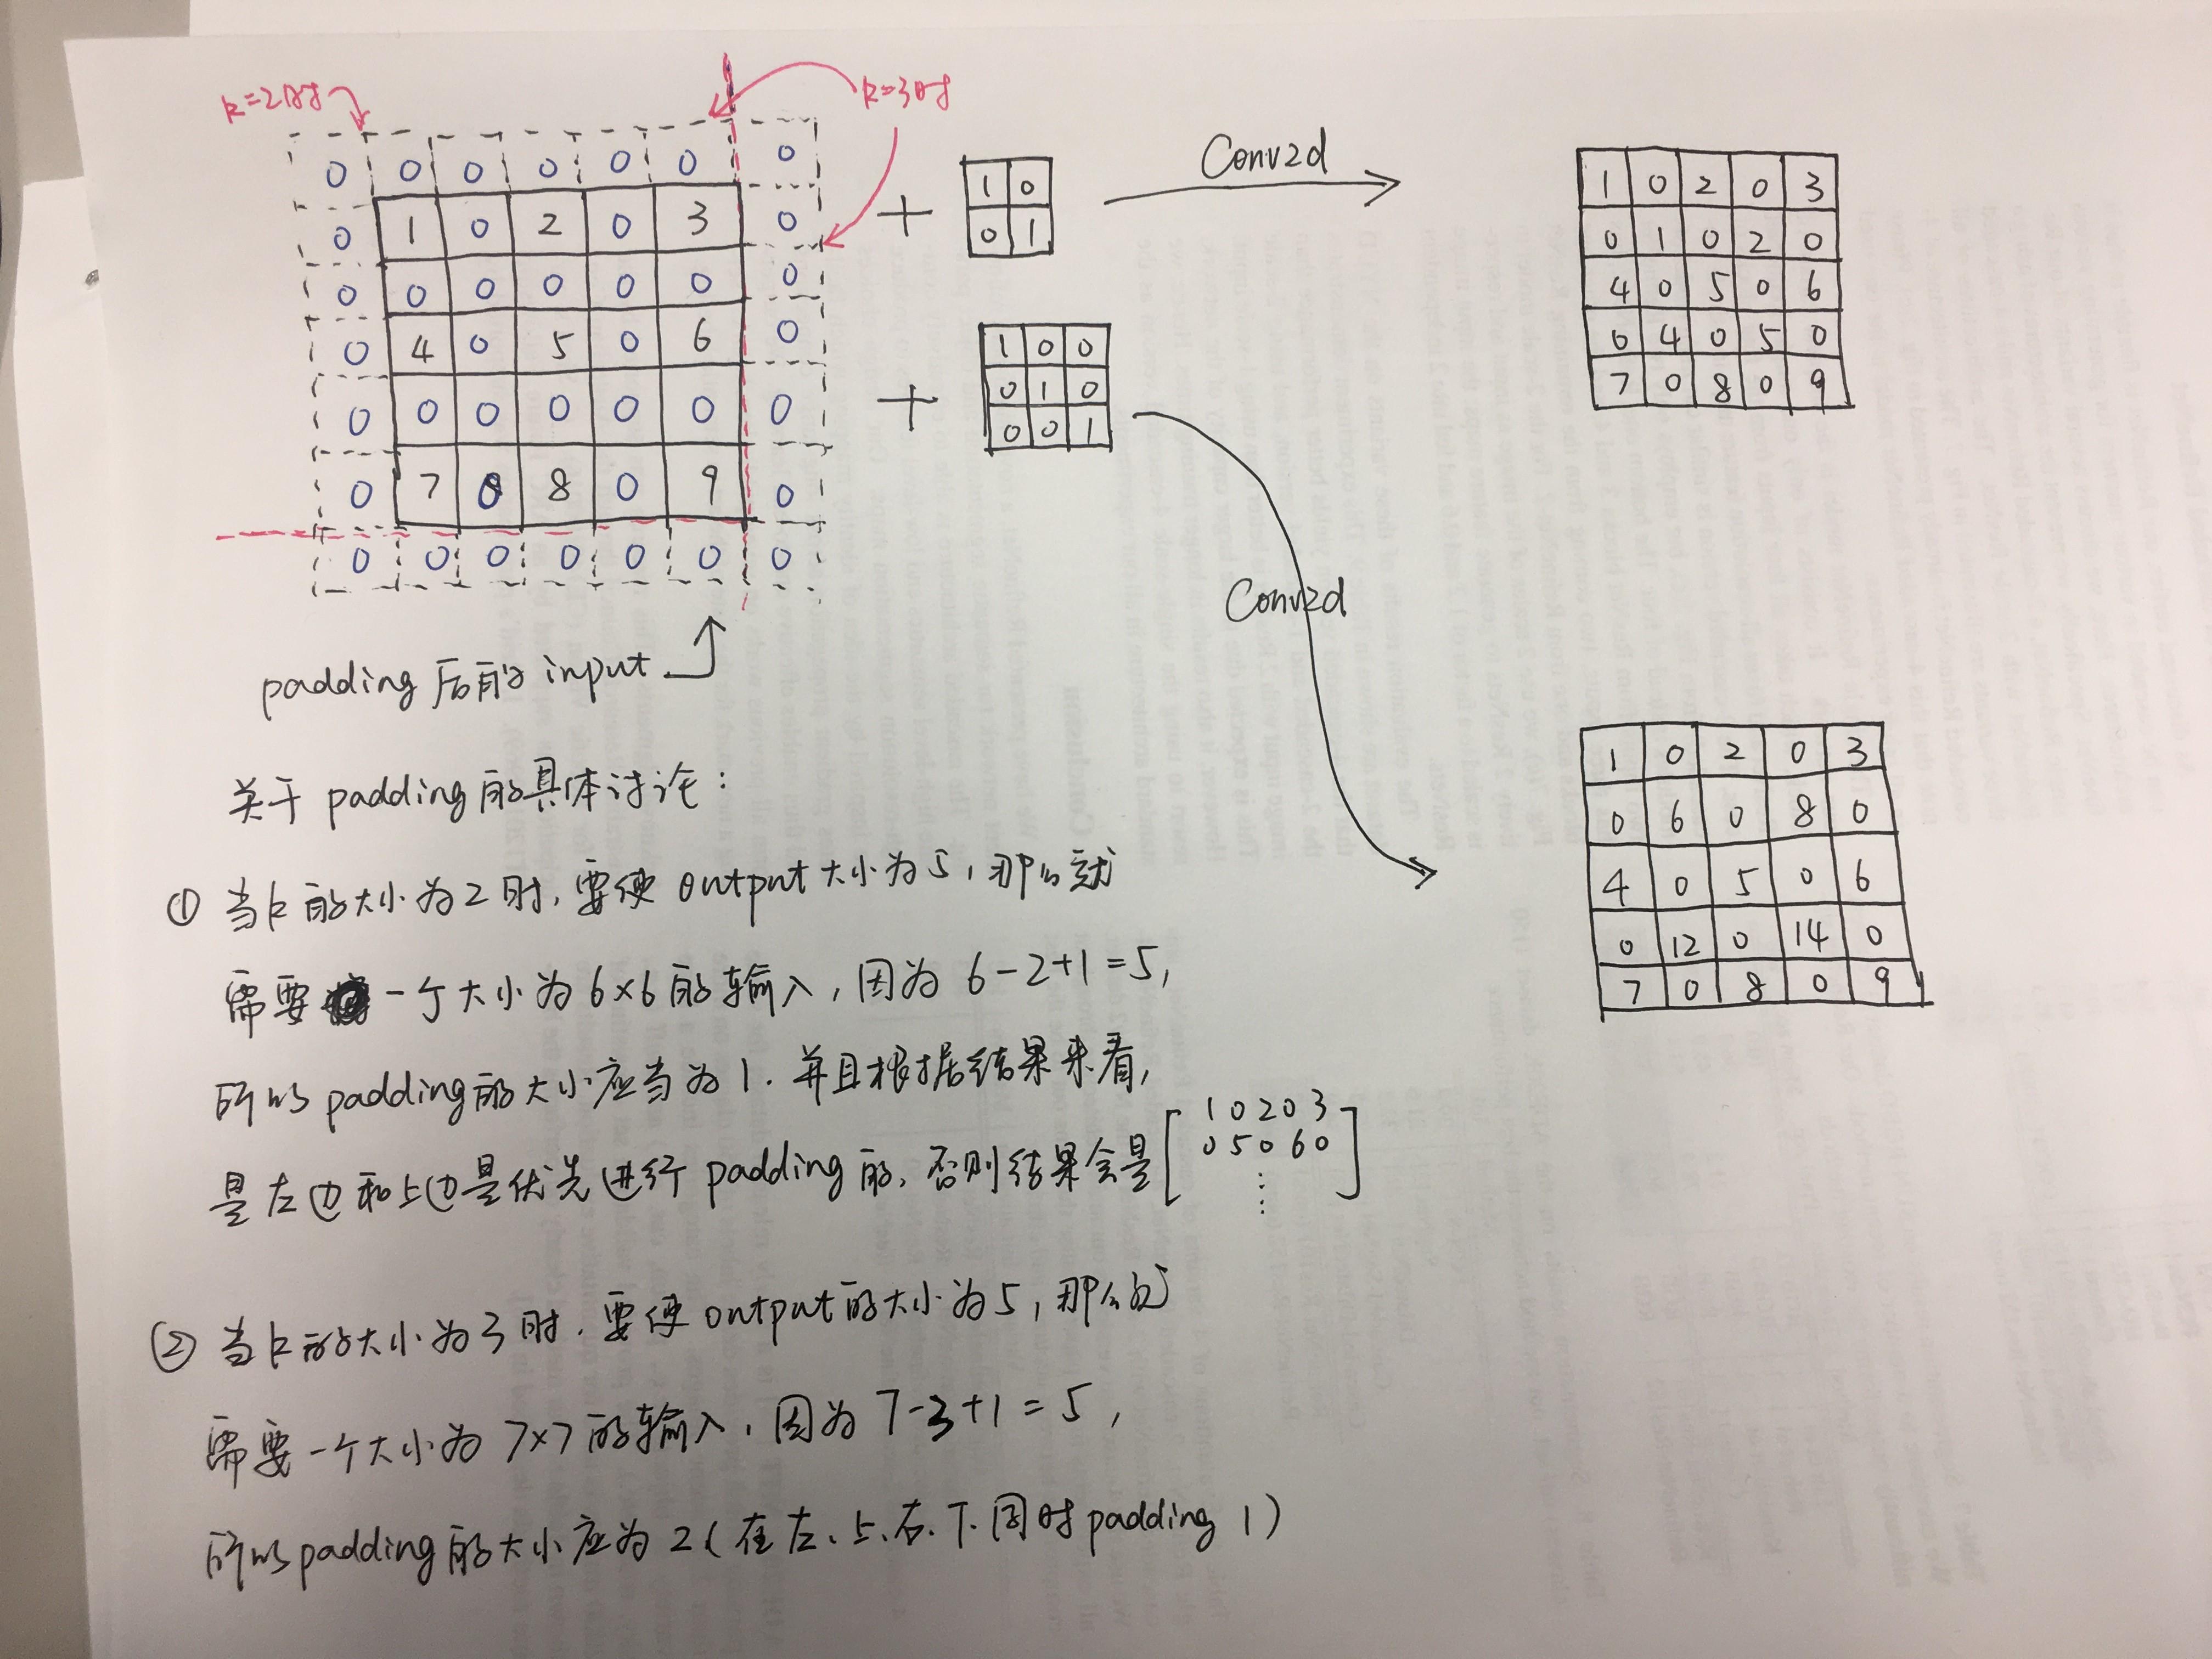 k=2时
k=3时
0 0 0 0 0 0 0
0 1 0 2 0 3 0
0 0 0 0 0 0 0
0 4 0 5 0 6 0
0 0 0 0 0 0 0
0 7 0 8 0 9 0
0 0 0 0 0 0 0
+
1 0
0 1
Conv2d
1 0 2 0 3
0 1 0 2 0
4 0 5 0 6
0 4 0 5 0
7 0 8 0 9
+
1 0 0
0 1 0
0 0 1
Conv2d
1 0 2 0 3
0 6 0 8 0
4 0 5 0 6
0 12 0 14 0
7 0 8 0 9
padding后的input
关于padding的具体讨论：
① 当k的大小为2时，要使output大小为5，那么就
需要一个大小为6×6的输入，因为6-2+1=5，
所以padding的大小应当为1. 并且根据结果来看，
是左边和上边是优先进行padding的，否则结果会是
1 0 2 0 3
0 5 0 6 0
⋮
② 当k的大小为3时，要使output的大小为5，那么
需要一个大小为7×7的输入，因为7-3+1=5，
所以padding的大小应为2(在左、上、右、下同时padding 1)